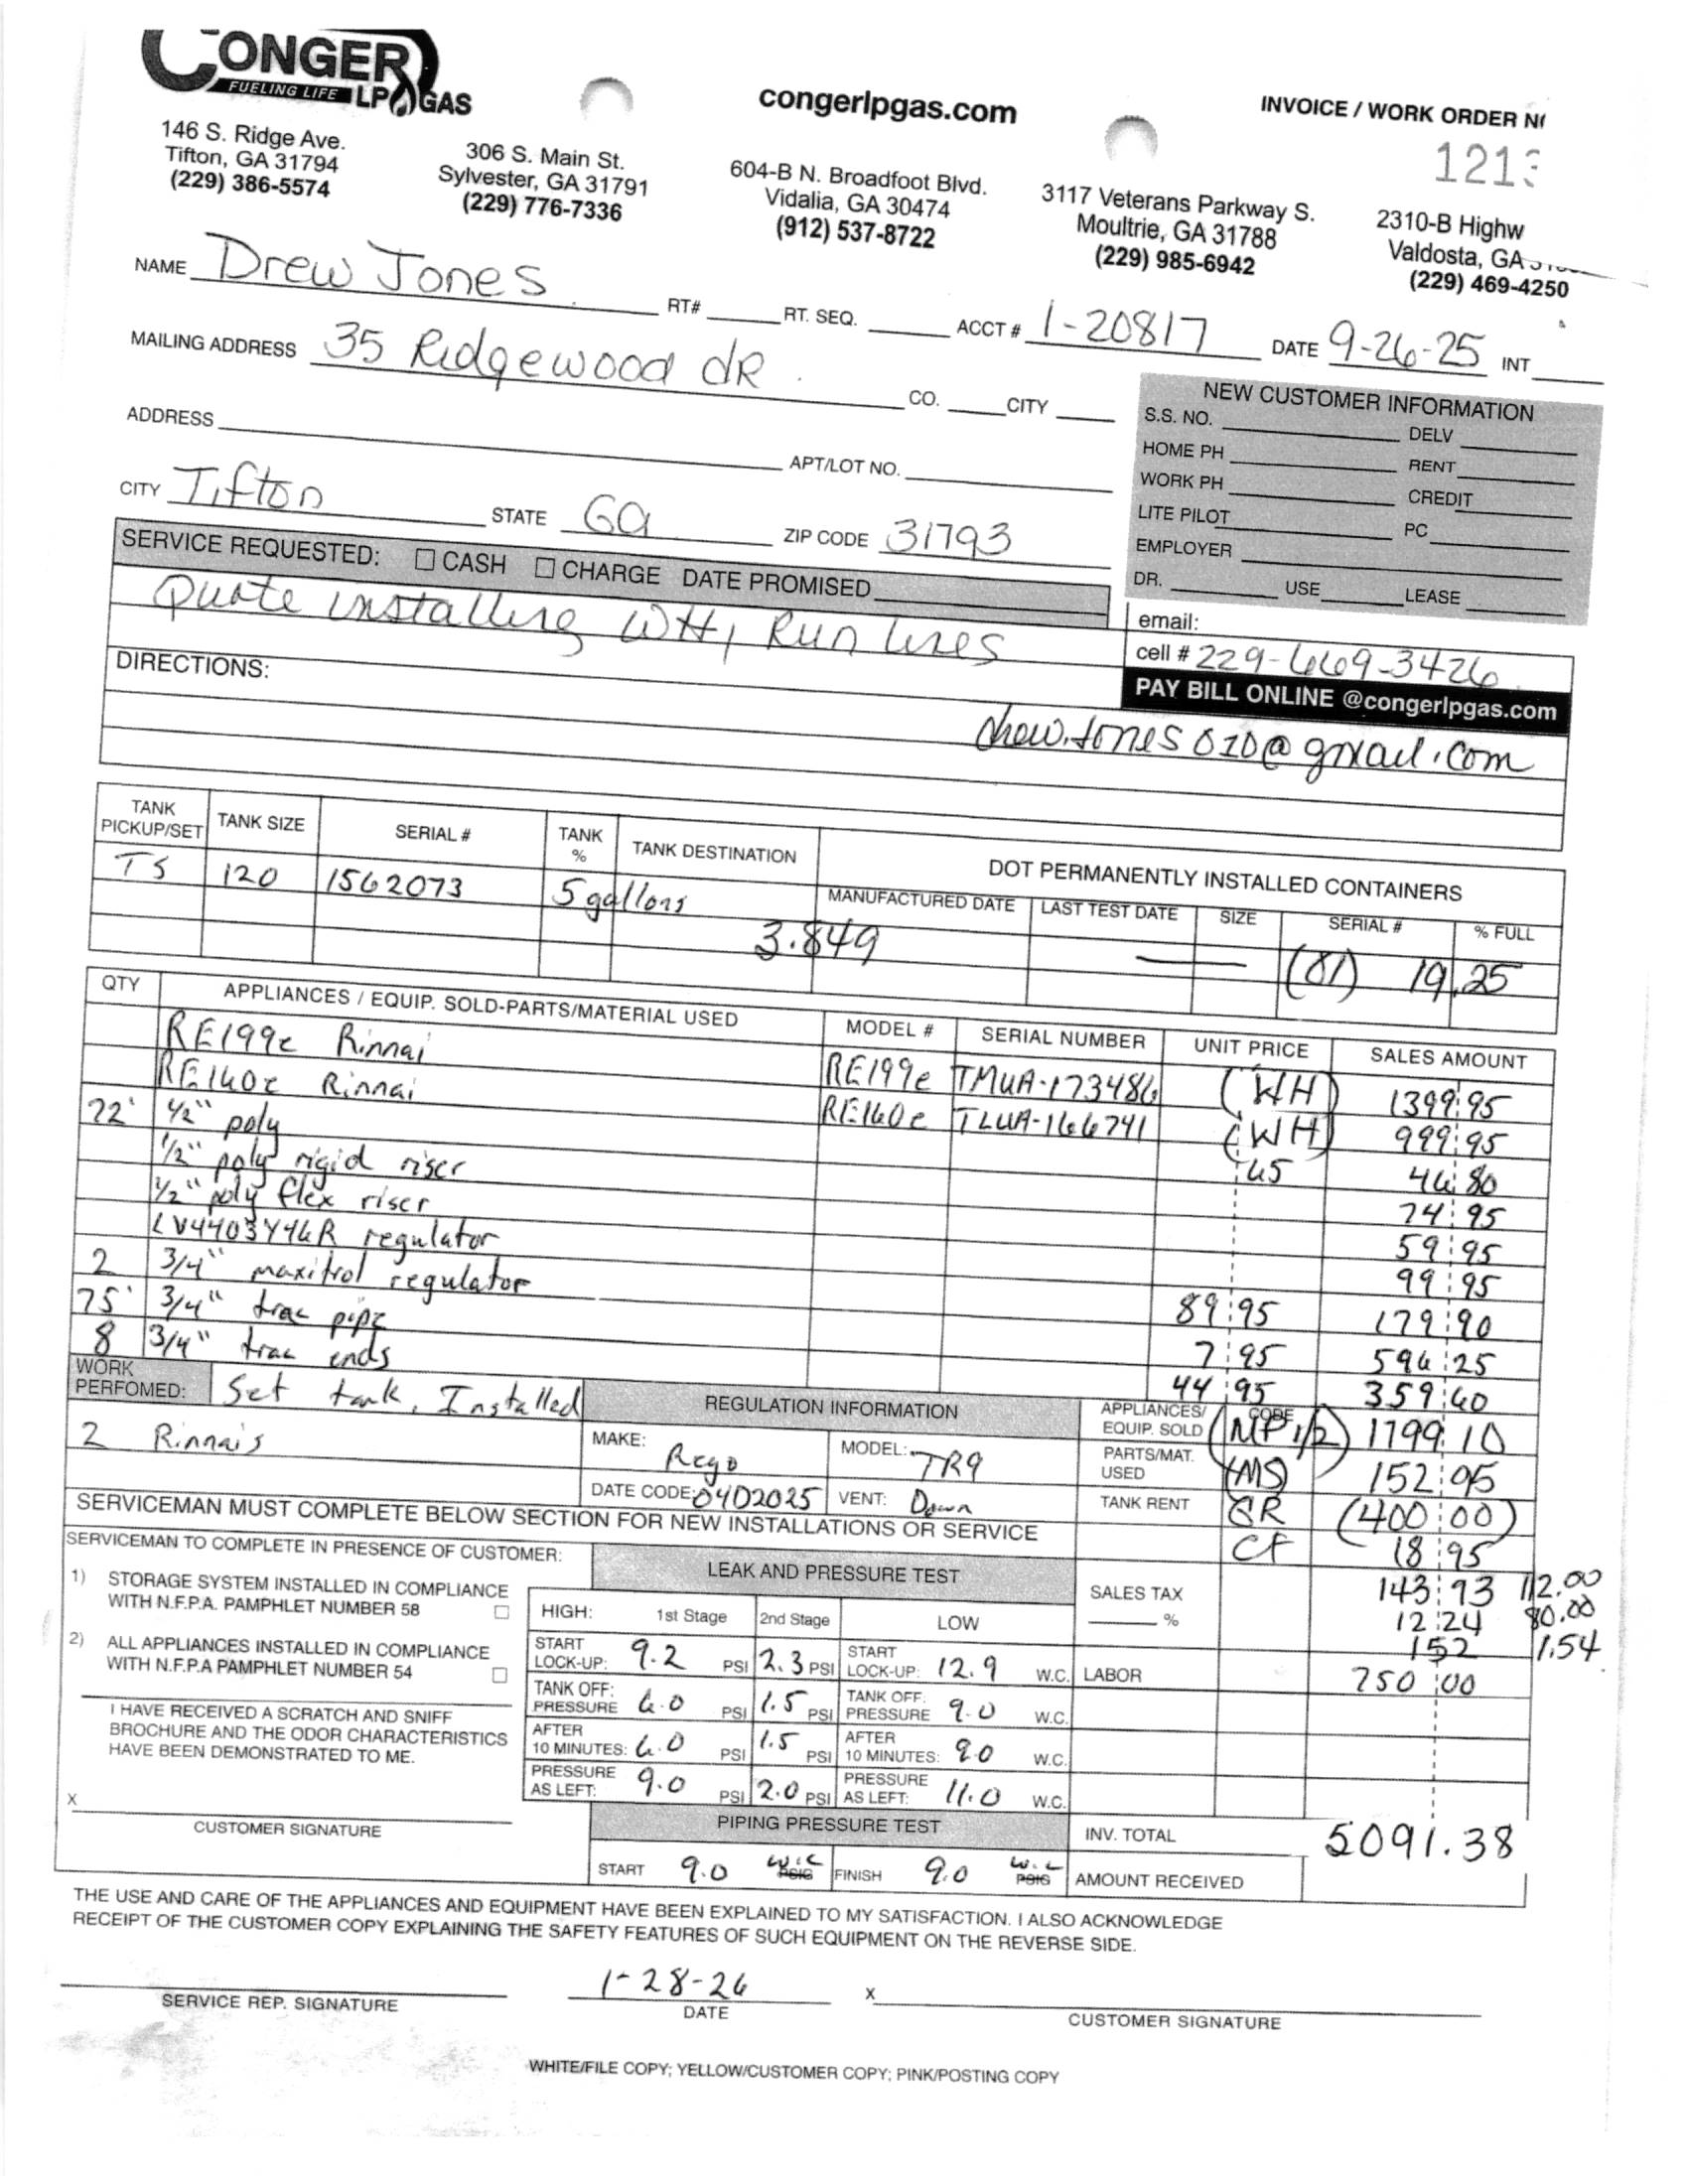 CONGER
FUELING LIFE LP GAS
congerlpgas.com
INVOICE / WORK ORDER
146 S. Ridge Ave.
Tifton, GA 31794
(229) 386-5574
306 S. Main St.
Sylvester, GA 31791
(229) 776-7336
604-B N. Broadfoot Blvd.
Vidalia, GA 30474
(912) 537-8722
3117 Veterans Parkway S.
Moultrie, GA 31788
(229) 985-6942
2310-B Highw
Valdosta, GA
(229) 469-4250
NAME Drew Jones RT# RT. SEQ. ACCT # 1-20817 DATE 9-26-25 INT
MAILING ADDRESS 35 Ridgewood dR CO. CITY
ADDRESS APT/LOT NO.
CITY Tifton STATE Ga ZIP CODE 31793
NEW CUSTOMER INFORMATION
S.S. NO. DELV
HOME PH RENT
WORK PH CREDIT
LITE PILOT PC
EMPLOYER
DR. USE LEASE
SERVICE REQUESTED: CASH CHARGE DATE PROMISED
Quote installing WH, Run lines
email:
cell # 229-669-3426
PAY BILL ONLINE @congerlpgas.com
DIRECTIONS:
@gmail.com
TANK PICKUP/SET TANK SIZE SERIAL # TANK % TANK DESTINATION DOT PERMANENTLY INSTALLED CONTAINERS
MANUFACTURED DATE LAST TEST DATE SIZE SERIAL # % FULL
TS 120 1562073 5 gallons
3.849 (81) 19.25
QTY APPLIANCES / EQUIP. SOLD-PARTS/MATERIAL USED MODEL # SERIAL NUMBER UNIT PRICE SALES AMOUNT
RE199e Rinnai RE199e TMUA-173486 (WH) 1399.95
RE160e Rinnai RE160e TLUA-166741 (WH) 999.95
72' 1/2" poly .65 46.80
1/2" poly rigid riser 74.95
1/2" poly flex riser 59.95
LV4403Y46R regulator 99.95
2 3/4" maxitrol regulator 89.95 179.90
75' 3/4" trac pipe 7.95 596.25
8 3/4" trac ends 44.95 359.60
WORK PERFOMED: Set tank, Installed
2 Rinnai's
REGULATION INFORMATION
MAKE: Rego MODEL: TR9
DATE CODE: 04D2025 VENT: Down
APPLIANCES/ EQUIP. SOLD CODE (MP 1/2) 1799.10
PARTS/MAT. USED (MS) 152.95
TANK RENT CR (400.00)
CF 18.95
SALES TAX 143.93 112.00
% 12.24 80.00
152 1.54
LABOR 750.00
SERVICEMAN MUST COMPLETE BELOW SECTION FOR NEW INSTALLATIONS OR SERVICE
SERVICEMAN TO COMPLETE IN PRESENCE OF CUSTOMER:
1) STORAGE SYSTEM INSTALLED IN COMPLIANCE
WITH N.F.P.A. PAMPHLET NUMBER 58
2) ALL APPLIANCES INSTALLED IN COMPLIANCE
WITH N.F.P.A PAMPHLET NUMBER 54
I HAVE RECEIVED A SCRATCH AND SNIFF
BROCHURE AND THE ODOR CHARACTERISTICS
HAVE BEEN DEMONSTRATED TO ME.
X
CUSTOMER SIGNATURE
LEAK AND PRESSURE TEST
HIGH: 1st Stage 2nd Stage LOW
START LOCK-UP: 9.2 PSI 2.3 PSI START LOCK-UP: 12.9 W.C.
TANK OFF: PRESSURE 6.0 PSI 1.5 PSI TANK OFF: PRESSURE 9.0 W.C.
AFTER 10 MINUTES: 6.0 PSI 1.5 PSI AFTER 10 MINUTES: 9.0 W.C.
PRESSURE AS LEFT: 9.0 PSI 2.0 PSI PRESSURE AS LEFT: 11.0 W.C.
PIPING PRESSURE TEST
START 9.0 W.C PSIG FINISH 9.0 W.C PSIG
INV. TOTAL 5091.38
AMOUNT RECEIVED
THE USE AND CARE OF THE APPLIANCES AND EQUIPMENT HAVE BEEN EXPLAINED TO MY SATISFACTION. I ALSO ACKNOWLEDGE
RECEIPT OF THE CUSTOMER COPY EXPLAINING THE SAFETY FEATURES OF SUCH EQUIPMENT ON THE REVERSE SIDE.
1-28-26 X
SERVICE REP. SIGNATURE DATE CUSTOMER SIGNATURE
WHITE/FILE COPY; YELLOW/CUSTOMER COPY; PINK/POSTING COPY